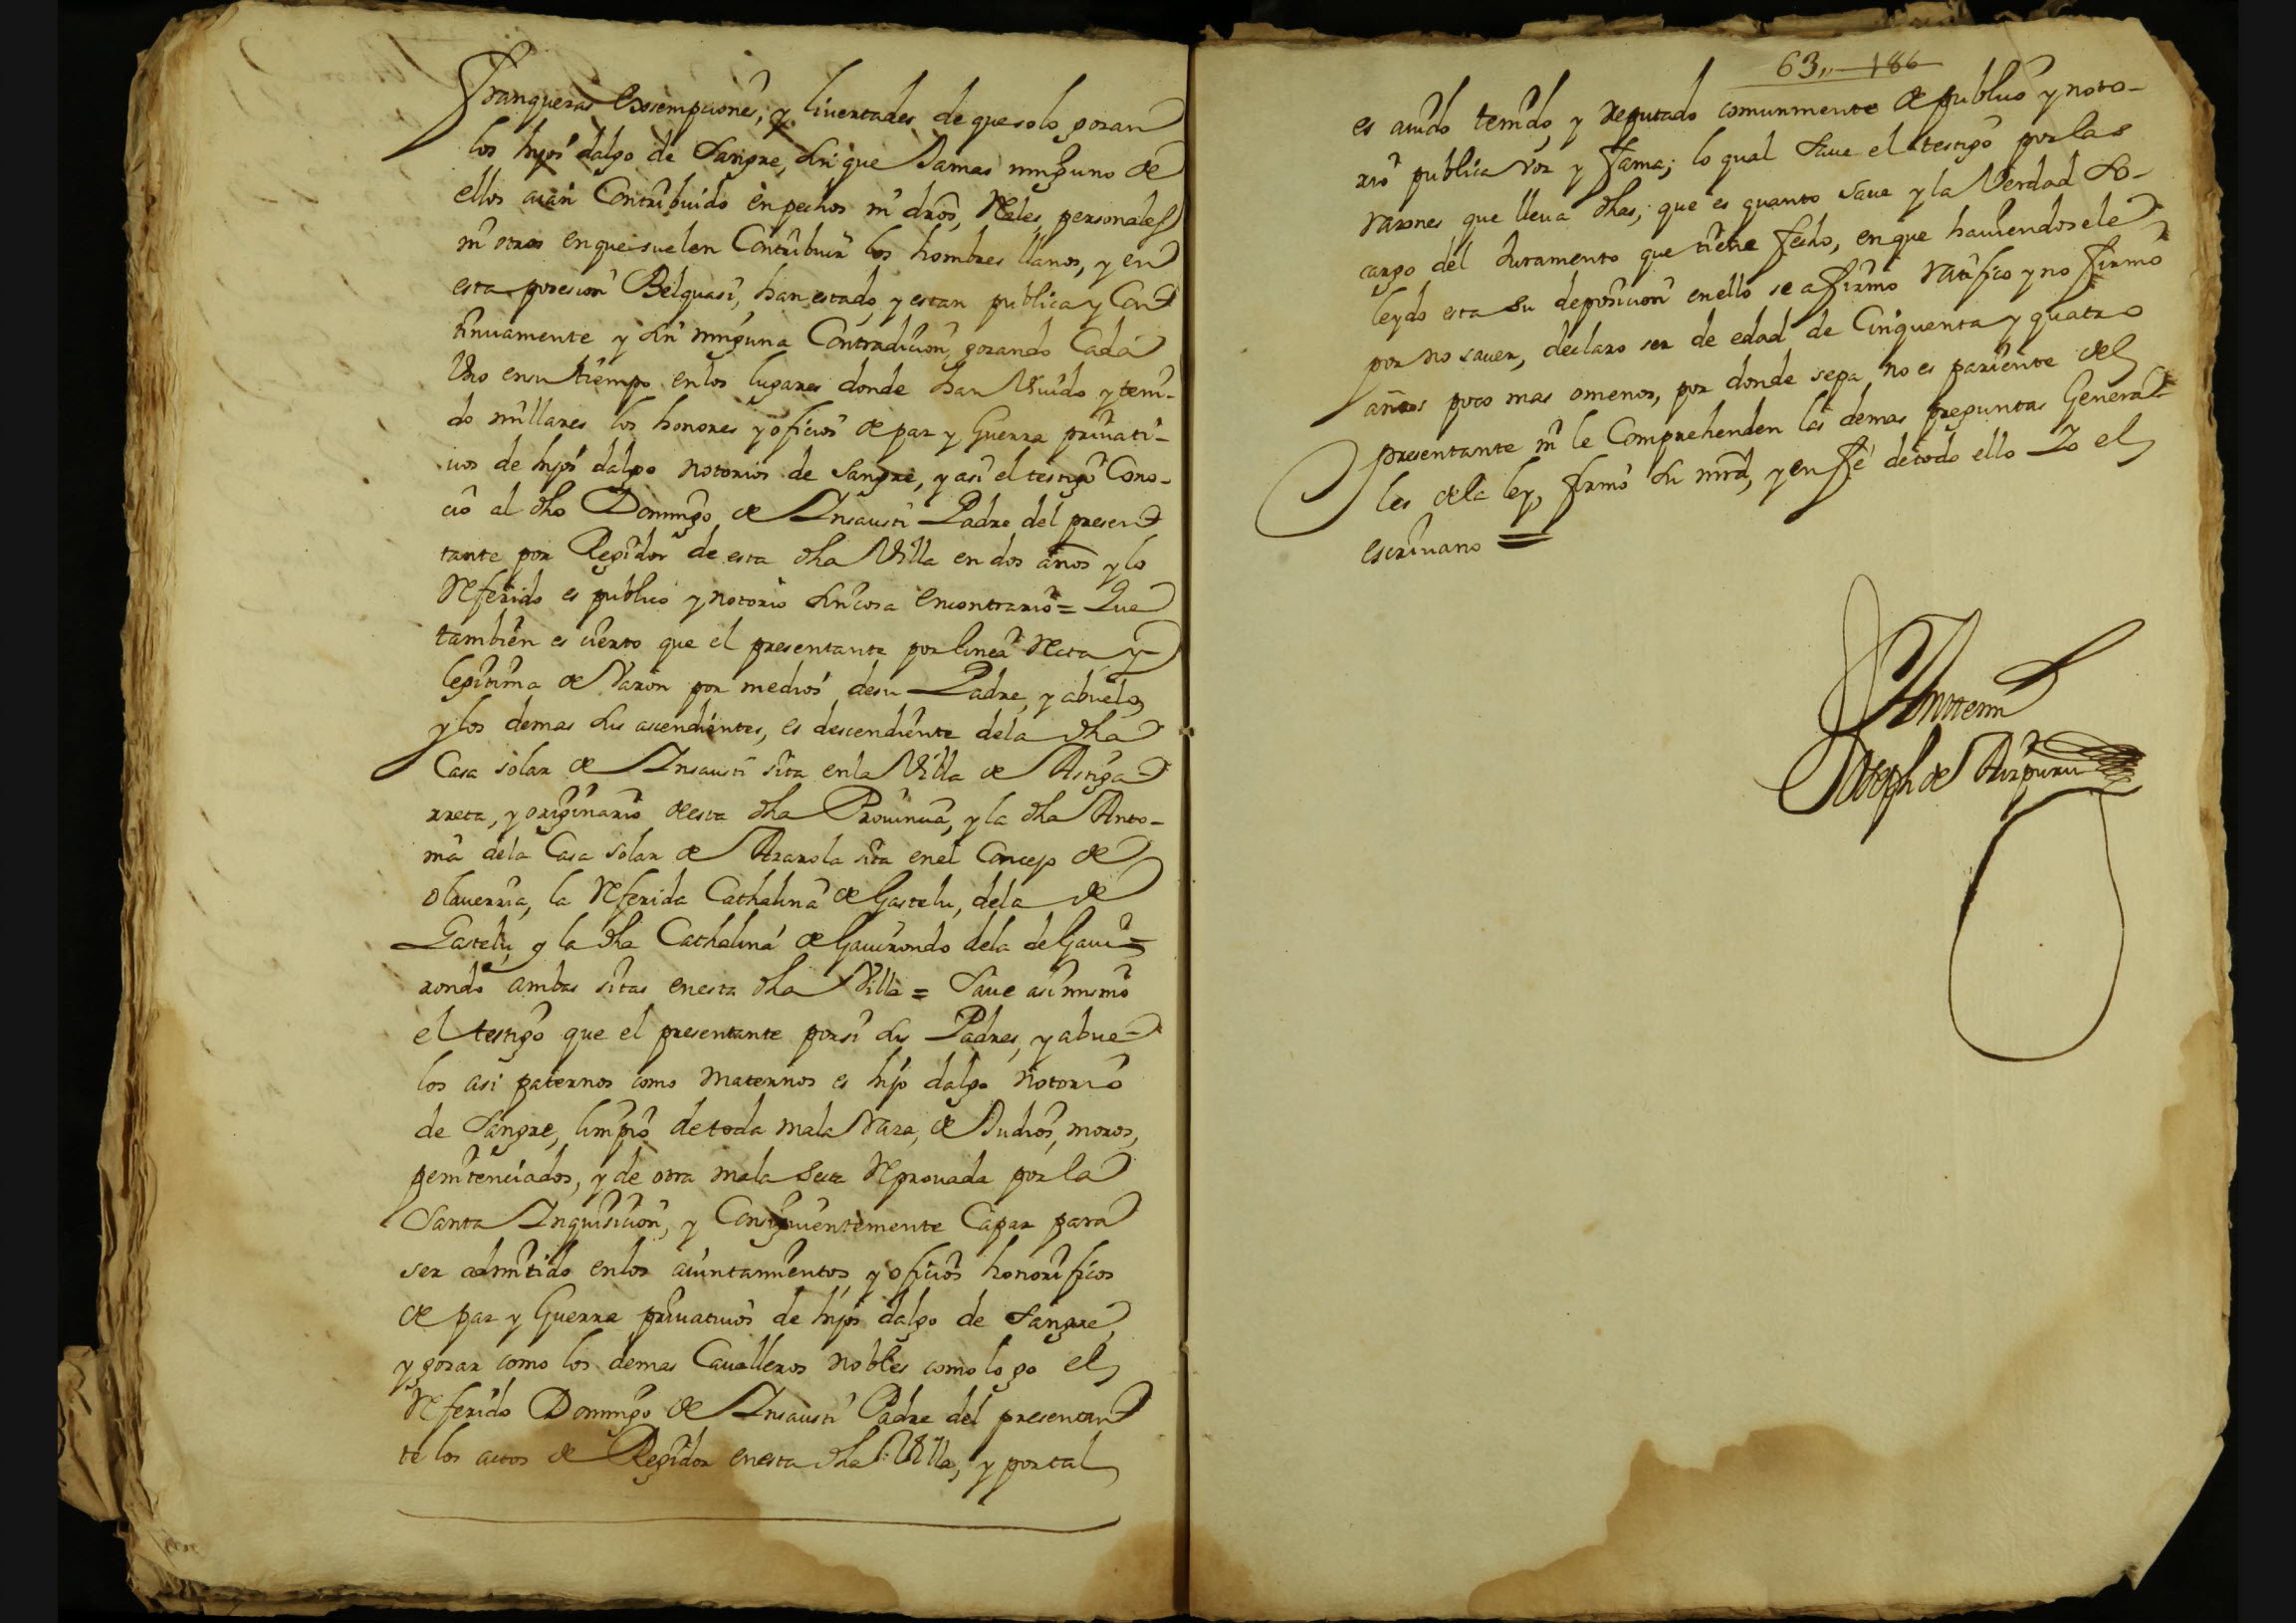 franquezas Exsempciones, y livertades de que solo gozan
los hijos dalgo de Sangre, sin que Jamas ninguno de
ellos aian Contribuido en pechos ni dros, Reales, personales
ni otros en que suelen Contribuir los hombres llanos, y en
esta posesion Belquasi, han estado, y estan publica y Con
tinuamente y sin ninguna Contradicion, gozando Cada
Uno en su tiempo en los lugares donde han Vivido y teni-
do millares los honores y oficios de paz y Guerra privati-
vos de hijos dalgo notorios de Sangre, y asi el testigo Cono-
cio al dho Domingo de Insausti Padre del presen
tante por Regidor de esta dha Villa en dos años y lo
Referido es publico y notorio sin cosa encontrario = Que
tambien es cierto que el presentante por linea Recta y
legitima de Varon por medios de su Padre, y abuelos
y los demas sus ascendientes, es descendiente dela dha
Casa solar de Insausti sita en la Villa de Astiga
rreta, y originario desta dha Provincia, y la dha Anto-
nia dela Casa solar de Arazola sita en el Concejo de
olaverria, la Referida Cathalina de Gastelu, dela de
Gastelu, y la dha Cathalina de Gavirondo dela de Gavi=
rondo ambas sitas en esta dha Villa = Save asi mismo
el testigo que el presentante por si sus Padres, y abue-
los asi paternos como Maternos es hijo dalgo Notorio
de Sangre, limpio de toda mala Raza, de Judios, moros,
penitenciados, y de otra mala Secta Reprovada por la
Santa Inquisicion, y Consiguientemente Capaz para
ser admitido en los aiuntamientos, y oficios honorificos
de paz y Guerra privativos de hijos dalgo de Sangre,
y gozar como los demas Cavalleros nobles como lo go el
Referido Domingo de Insausti Padre del presentan
te los actos de Regidor en esta dha Villa, y por tal
63,, 186
es avido tenido, y reputado comunmente de publico y noto-
rio publica voz y fama; lo qual Save el testigo por las
razones que lleva dhas, que es quanto save y la Verdad so-
cargo del Juramento que tiene fecho, en que haviendosele
leydo esta su deposicion en ello se afirmo ratifico y no firmo
por no saver, declaro ser de edad de Cinquenta y quatro
años poco mas omenos, por donde sepa no es pariente del
presentante ni le Comprehenden las demas preguntas Genera=
les dela ley, firmó su mrd, y en fé de todo ello Yo el
escrivano =
Ante mi
Joseph de Aizpuru